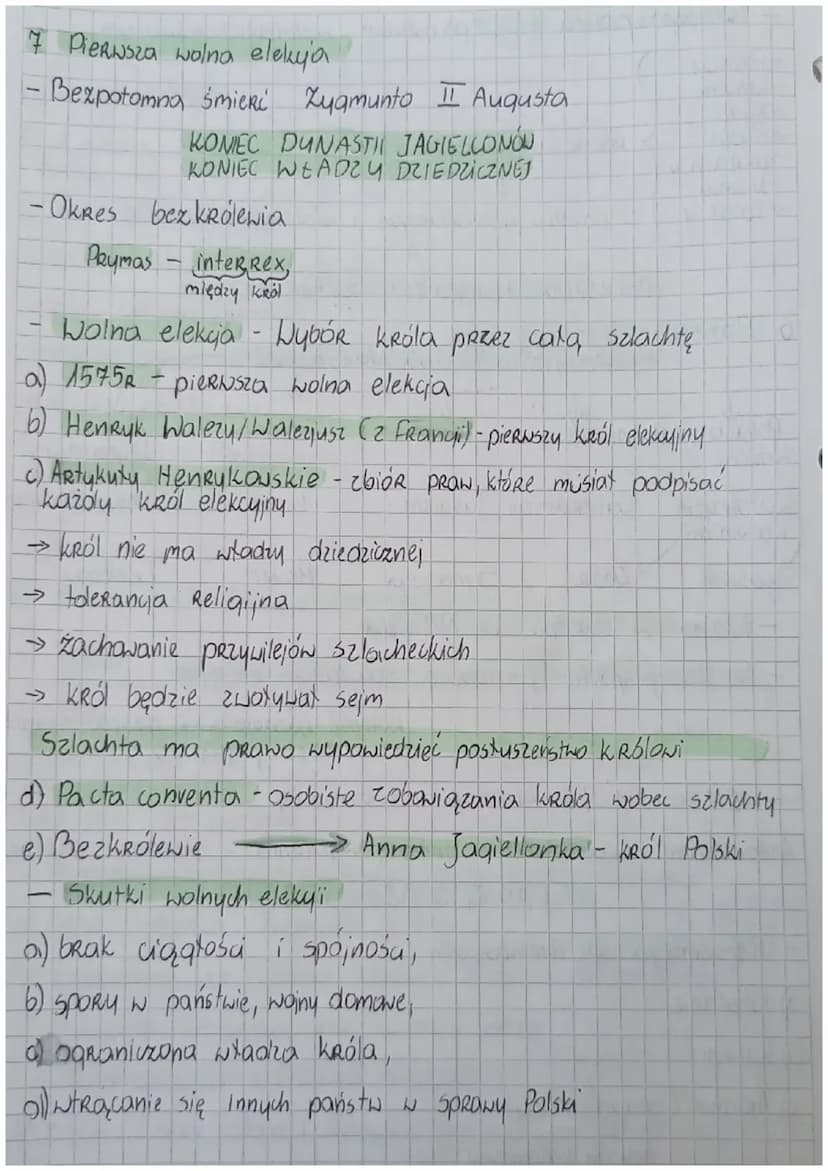 7 Pierwsza wolna elekcja
- Bezpotomna śmierć Zygmunta II Augusta
KONIEC DYNASTII JAGIELLONÓW
KONIEC WŁADZY DZIEDZICZNEJ
- Okres bezkrólewia
Prymas - interrex
między król
- Wolna elekcja - Wybór króla przez całą szlachtę
a) 1575R - pierwsza wolna elekcja
b) Henryk Walezy/Walezjusz (z Francji) - pierwszy król elekcyjny
c) Artykuły Henrykowskie - zbiór praw, które musiał podpisać
każdy król elekcyjny
→ król nie ma władzy dziedzicznej
→ tolerancja Religijna
→ zachowanie przywilejów szlacheckich
→ król będzie zwoływał sejm
Szlachta ma prawo wypowiedzieć posłuszeństwo królowi
d) Pacta conventa - osobiste zobowiązania króla wobec szlachty
e) Bezkrólewie → Anna Jagiellonka - król Polski
- Skutki wolnych elekcji
a) brak ciągłości i spójności,
b) spory w państwie, wojny domowe,
c) ograniczona władza króla,
d) wtrącanie się innych państw w sprawy Polski